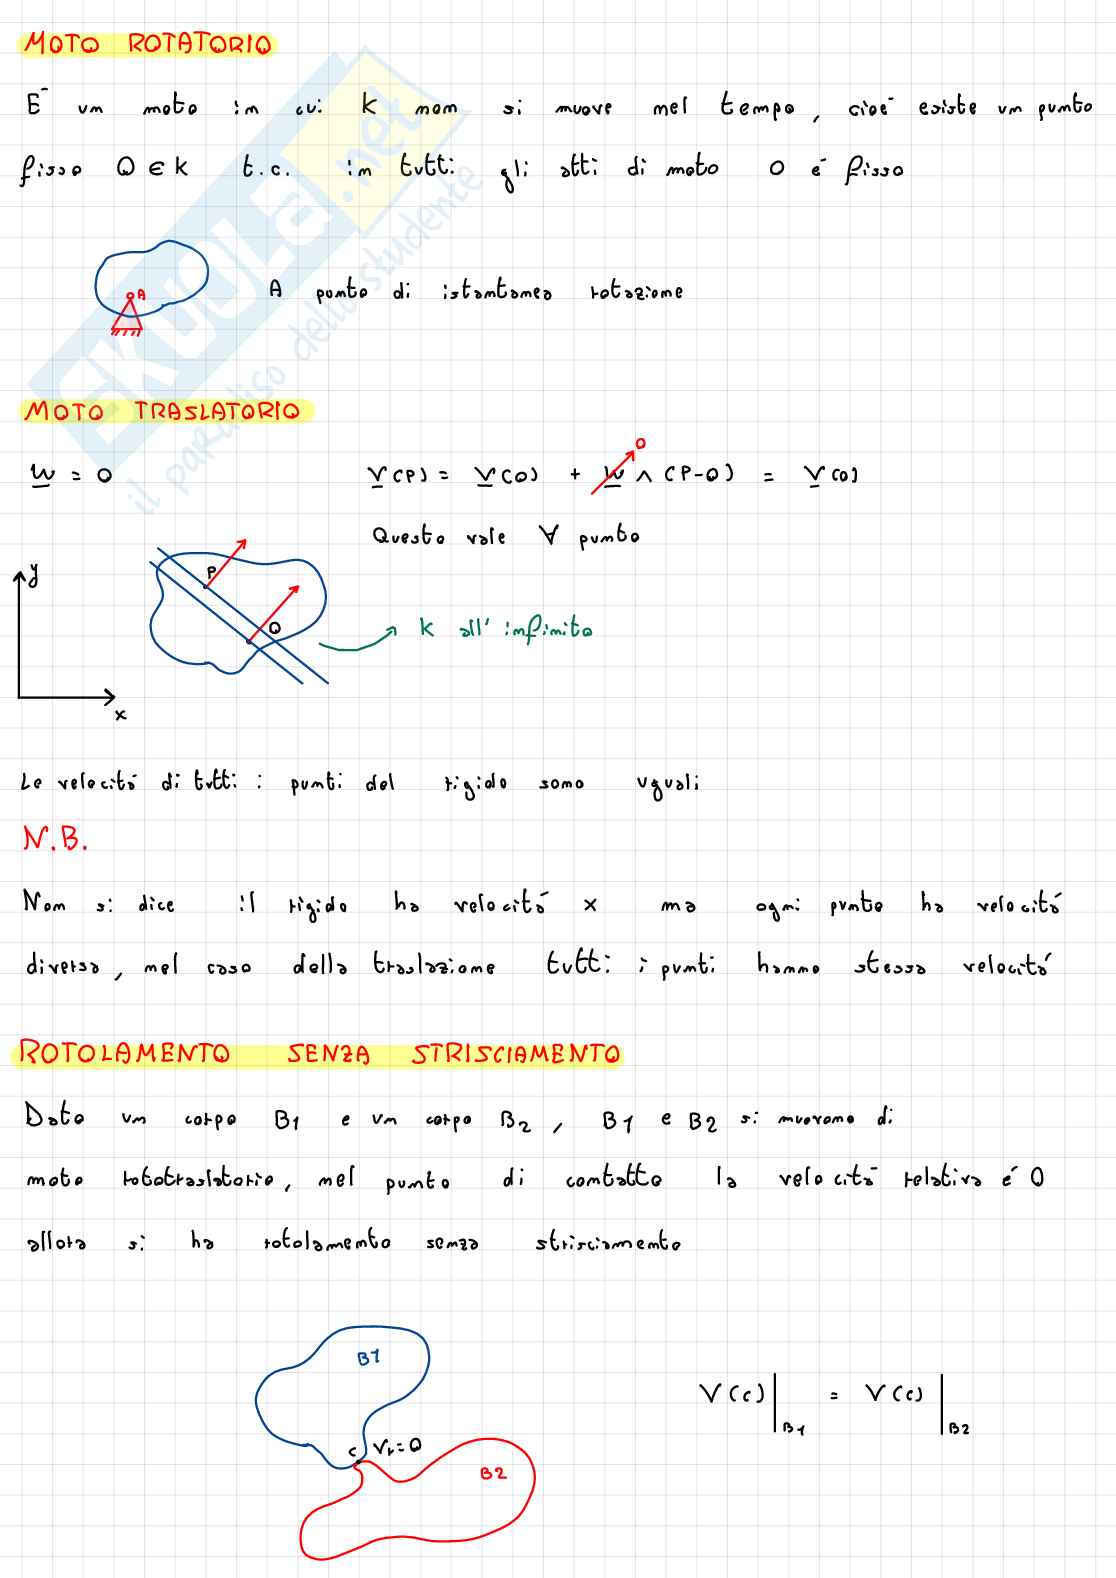 MOTO ROTATORIO
È un moto in cui k non si muove nel tempo, cioè esiste un punto
fisso O ∈ k t.c. in tutti gli atti di moto O è fisso
A
A punto di istantanea rotazione
MOTO TRASLATORIO
w = 0
V(P) = V(O) + w ∧ (P-O) = V(O)
0
Questo vale ∀ punto
y
P
O
k all'infinito
x
Le velocità di tutti i punti del rigido sono uguali
N.B.
Non si dice il rigido ha velocità x ma ogni punto ha velocità
diversa, nel caso della traslazione tutti i punti hanno stessa velocità
ROTOLAMENTO SENZA STRISCIAMENTO
Dato un corpo B1 e un corpo B2, B1 e B2 si muovono di
moto rototraslatorio, nel punto di contatto la velocità relativa è 0
allora si ha rotolamento senza strisciamento
B1
V(c)|B1 = V(c)|B2
c Vr=0
B2
SKUOLA.net
il paradiso dello studente